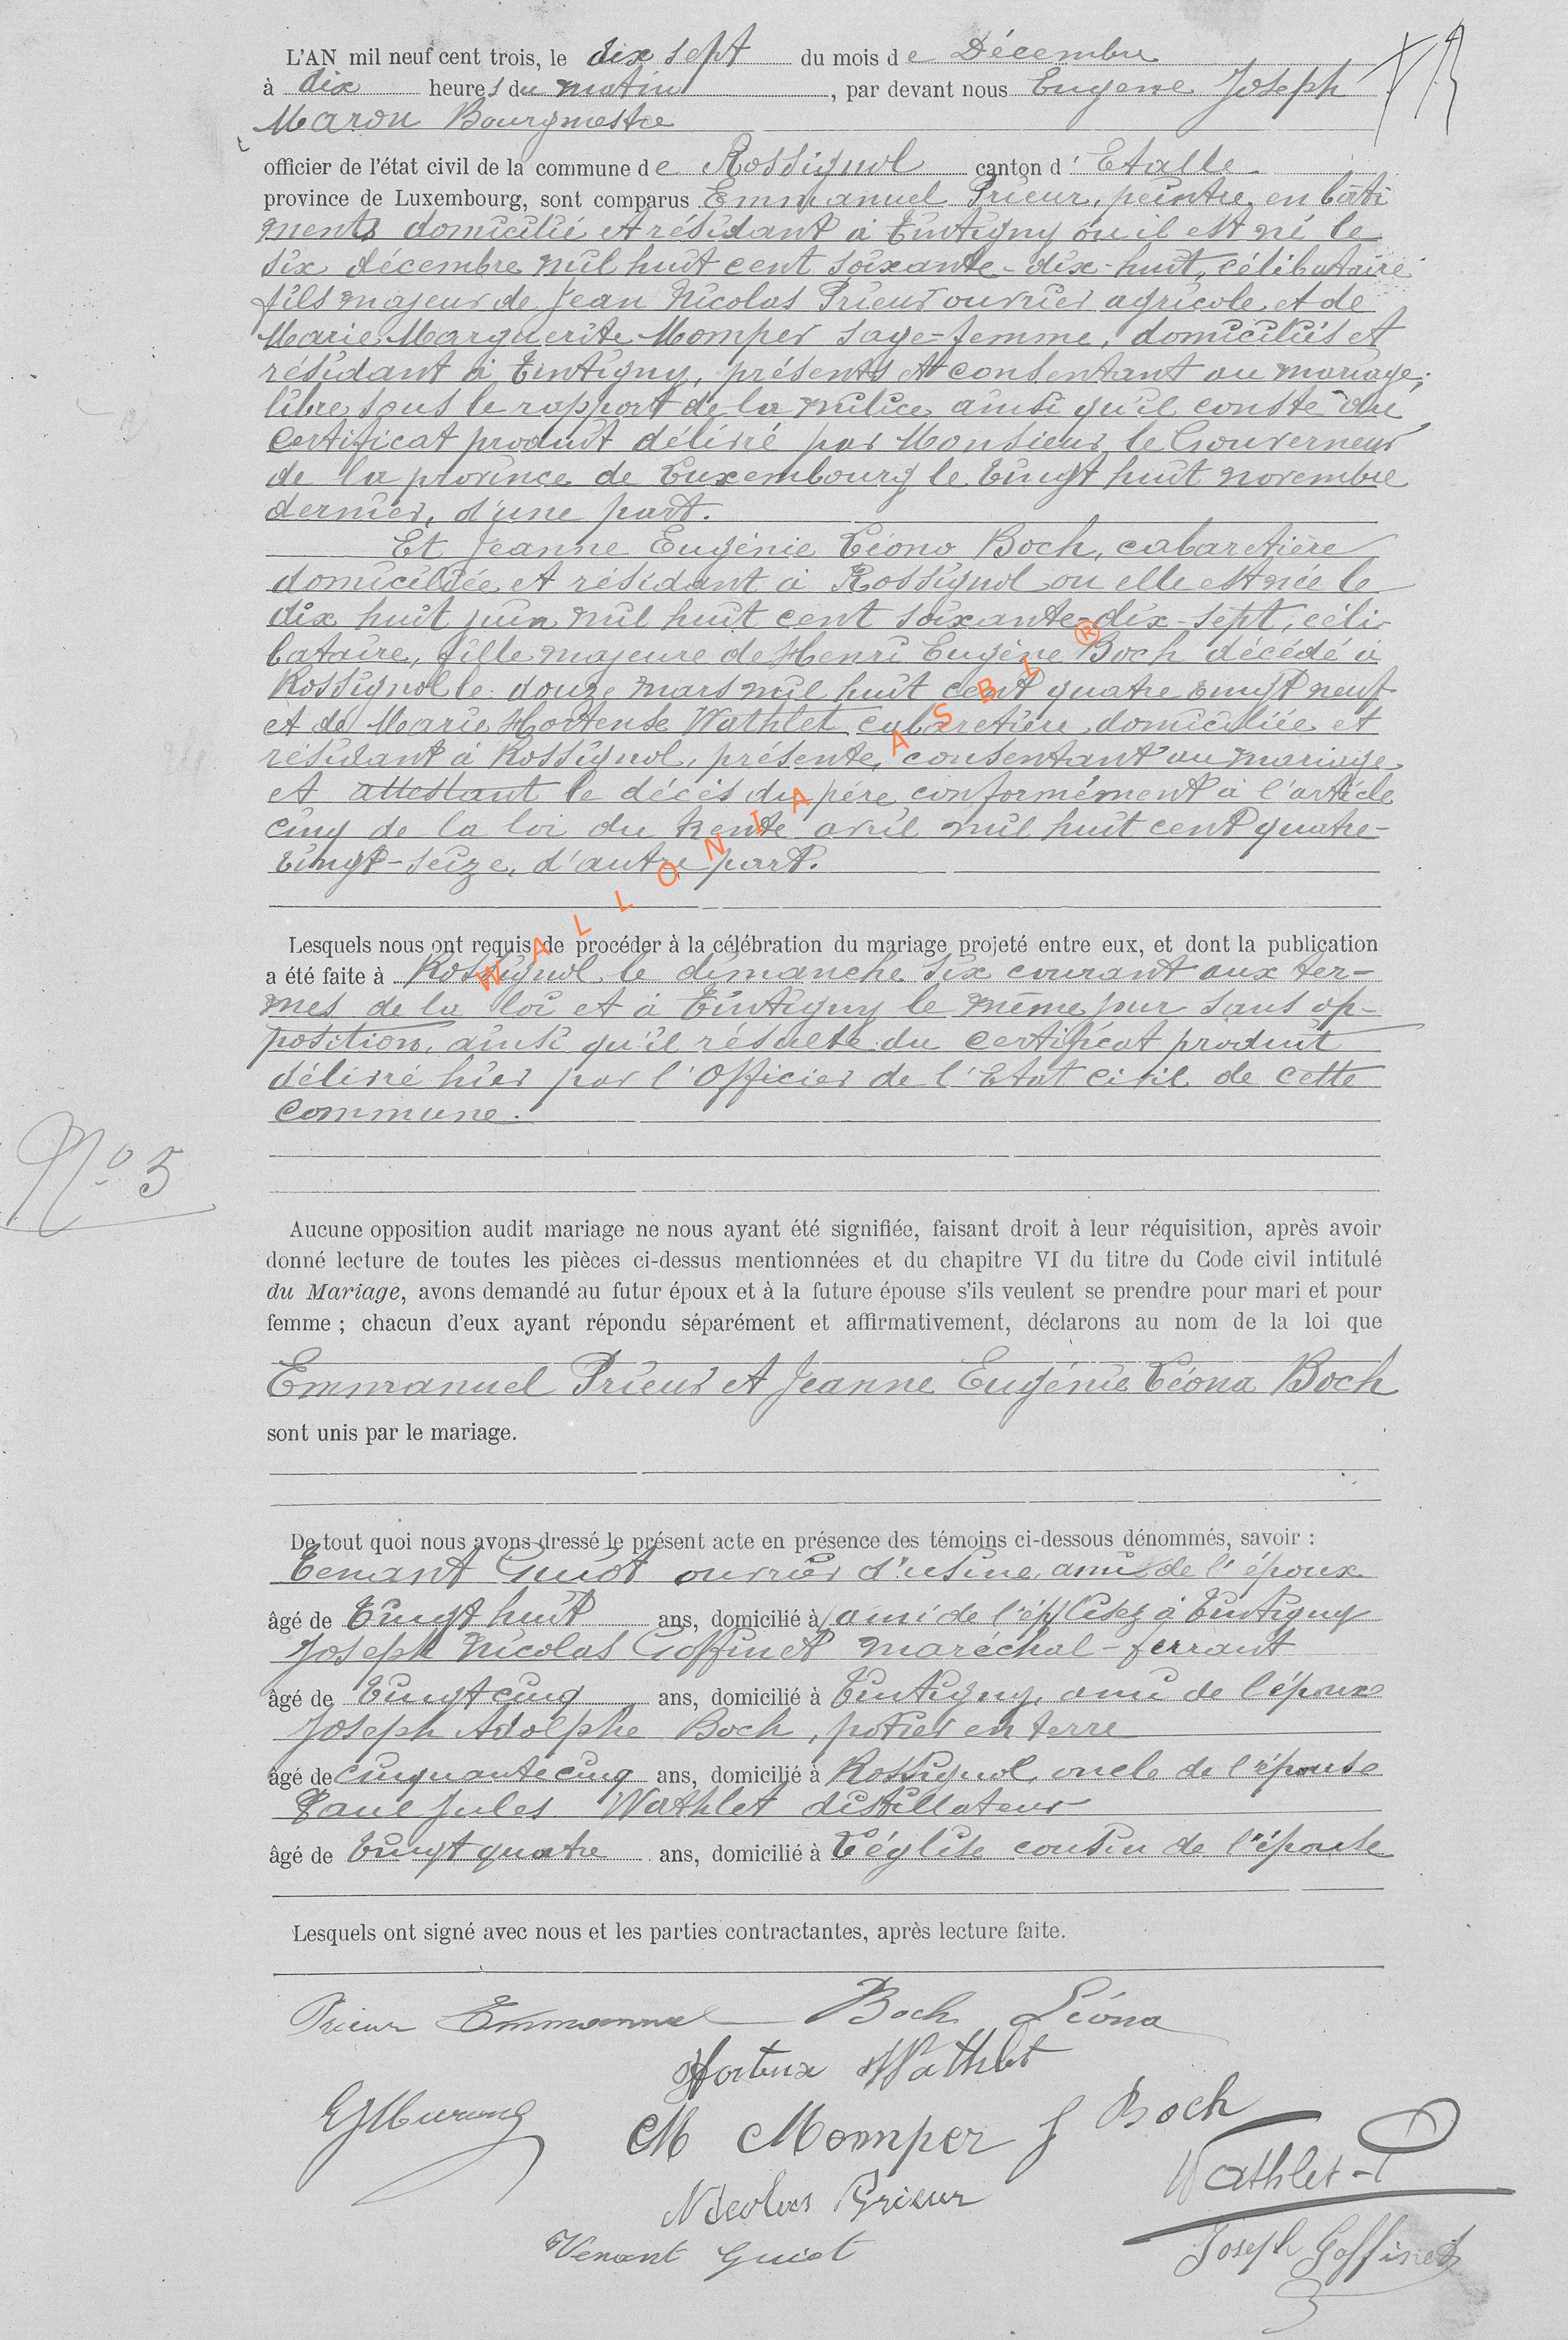 L'AN mil neuf cent trois, le dix sept du mois de Décembre
à dix heures du matin, par devant nous Eugène Joseph
Maron Bourgmestre
officier de l'état civil de la commune de Rossignol canton d'Etalle
province de Luxembourg, sont comparus Emmanuel Prieur, peintre en bâti
ments domicilié et résidant à Tintigny où il est né le
six décembre mil huit cent soixante-dix-huit, célibataire
fils majeur de Jean Nicolas Prieur ouvrier agricole et de
Marie Marguerite Momper sage-femme, domiciliés et
résidant à Tintigny, présents et consentant au mariage;
libre sous le rapport de la milice ainsi qu'il conste du
certificat produit délivré par Monsieur le Gouverneur
de la province de Luxembourg le vingt huit novembre
dernier, d'une part.
Et Jeanne Eugénie Léona Boch, cabaretière
domiciliée et résidant à Rossignol où elle est née le
dix huit juin mil huit cent soixante-dix-sept, céli-
bataire, fille majeure de Henri Eugène Boch décédé à
Rossignol le douze mars mil huit cent quatre vingt neuf
et de Marie Hortense Wathlet cabaretière domiciliée et
résidant à Rossignol, présente, consentant au mariage
et attestant le décès du père conformément à l'article
cinq de la loi du trente avril mil huit cent quatre-
vingt-seize, d'autre part.
WALLONIA ASBL ®
Lesquels nous ont requis de procéder à la célébration du mariage projeté entre eux, et dont la publication
a été faite à Rossignol le dimanche six courant aux ter-
mes de la loi et à Tintigny le même jour sans op-
position, ainsi qu'il résulte du certificat produit
délivré hier par l'Officier de l'Etat civil de cette
commune.
No 5
Aucune opposition audit mariage ne nous ayant été signifiée, faisant droit à leur réquisition, après avoir
donné lecture de toutes les pièces ci-dessus mentionnées et du chapitre VI du titre du Code civil intitulé
du Mariage, avons demandé au futur époux et à la future épouse s'ils veulent se prendre pour mari et pour
femme ; chacun d'eux ayant répondu séparément et affirmativement, déclarons au nom de la loi que
Emmanuel Prieur et Jeanne Eugénie Léona Boch
sont unis par le mariage.
De tout quoi nous avons dressé le présent acte en présence des témoins ci-dessous dénommés, savoir :
Venant Guiot ouvrier d'usine, ami de l'époux
âgé de vingt huit ans, domicilié à à Tintigny
Joseph Nicolas Goffinet maréchal-ferrant
âgé de vingt cinq ans, domicilié à Tintigny, ami de l'époux
Joseph Adolphe Boch, potier en terre
âgé de cinquante cinq ans, domicilié à Rossignol, oncle de l'épouse
Paul Jules Wathlet distillateur
âgé de vingt quatre ans, domicilié à Léglise cousin de l'épouse
Lesquels ont signé avec nous et les parties contractantes, après lecture faite.
Prieur Emmanuel Boch Léona
Hortense Wathlet
M Momper J Boch
Wathlet-P
Nicolas Prieur
Venant Guiot Joseph Goffinet